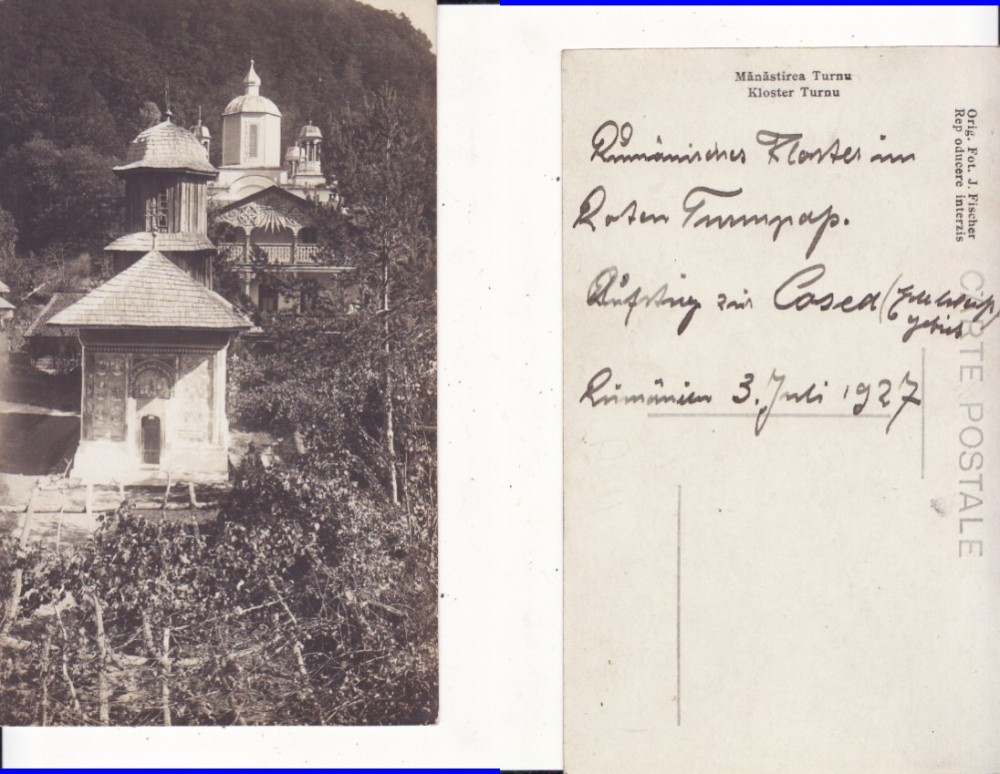 Mănăstirea Turnu
Kloster Turnu
Orig. Fot. J. Fischer
Rep oducere interzis
CARTE POSTALE
Rumänisches Kloster im
Roten Turmpaß.
Aufstieg zur Cosed (
gebiet
Rumänien 3. Juli 1927